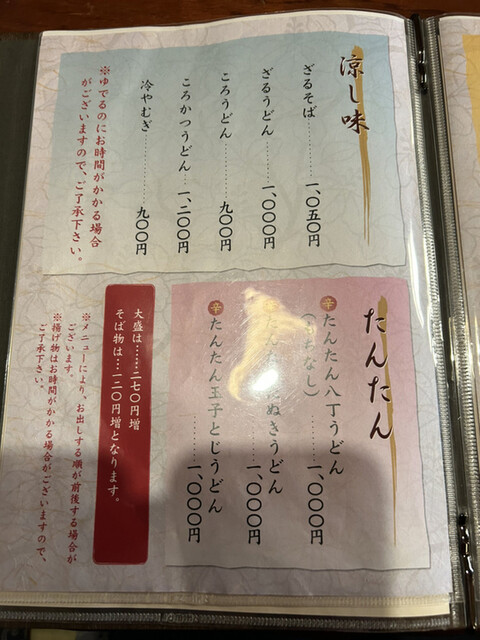 涼し味
ざるそば…………一、〇五〇円
ざるうどん…………一、〇〇〇円
ころうどん…………九〇〇円
ころかつうどん…一、二〇〇円
冷やむぎ…………九〇〇円
※ゆでるのにお時間がかかる場合
がございますので、ご了承下さい。
たんたん
辛 たんたん八丁うどん
…………一、〇〇〇円
ぬきうどん
…………一、〇〇〇円
辛 たんたん玉子とじうどん
…………一、〇〇〇円
大盛は……二七〇円増
そば物は…一二〇円増となります。
※メニューにより、お出しする順が前後する場合が
ございます。
※揚げ物はお時間がかかる場合がございますので、
ご了承下さい。